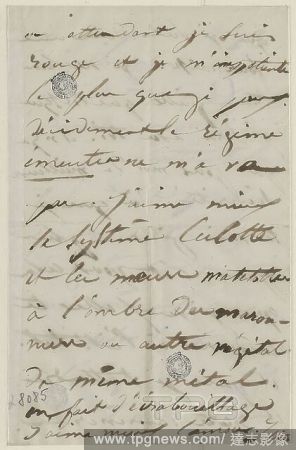 en attendant je suis
rouge et je m'impatiente
le plus que je peux
décidemment le régime
émeutier ne m'a va
pas. j'aime mieux
le système Culotte
et les mœurs
à l'ombre du maron-
nier ou autre végétal
du même métal.
en fait d'écrabouillage
j'aime mieux
8085
TPG
www.tpgnews.com / 達志影像